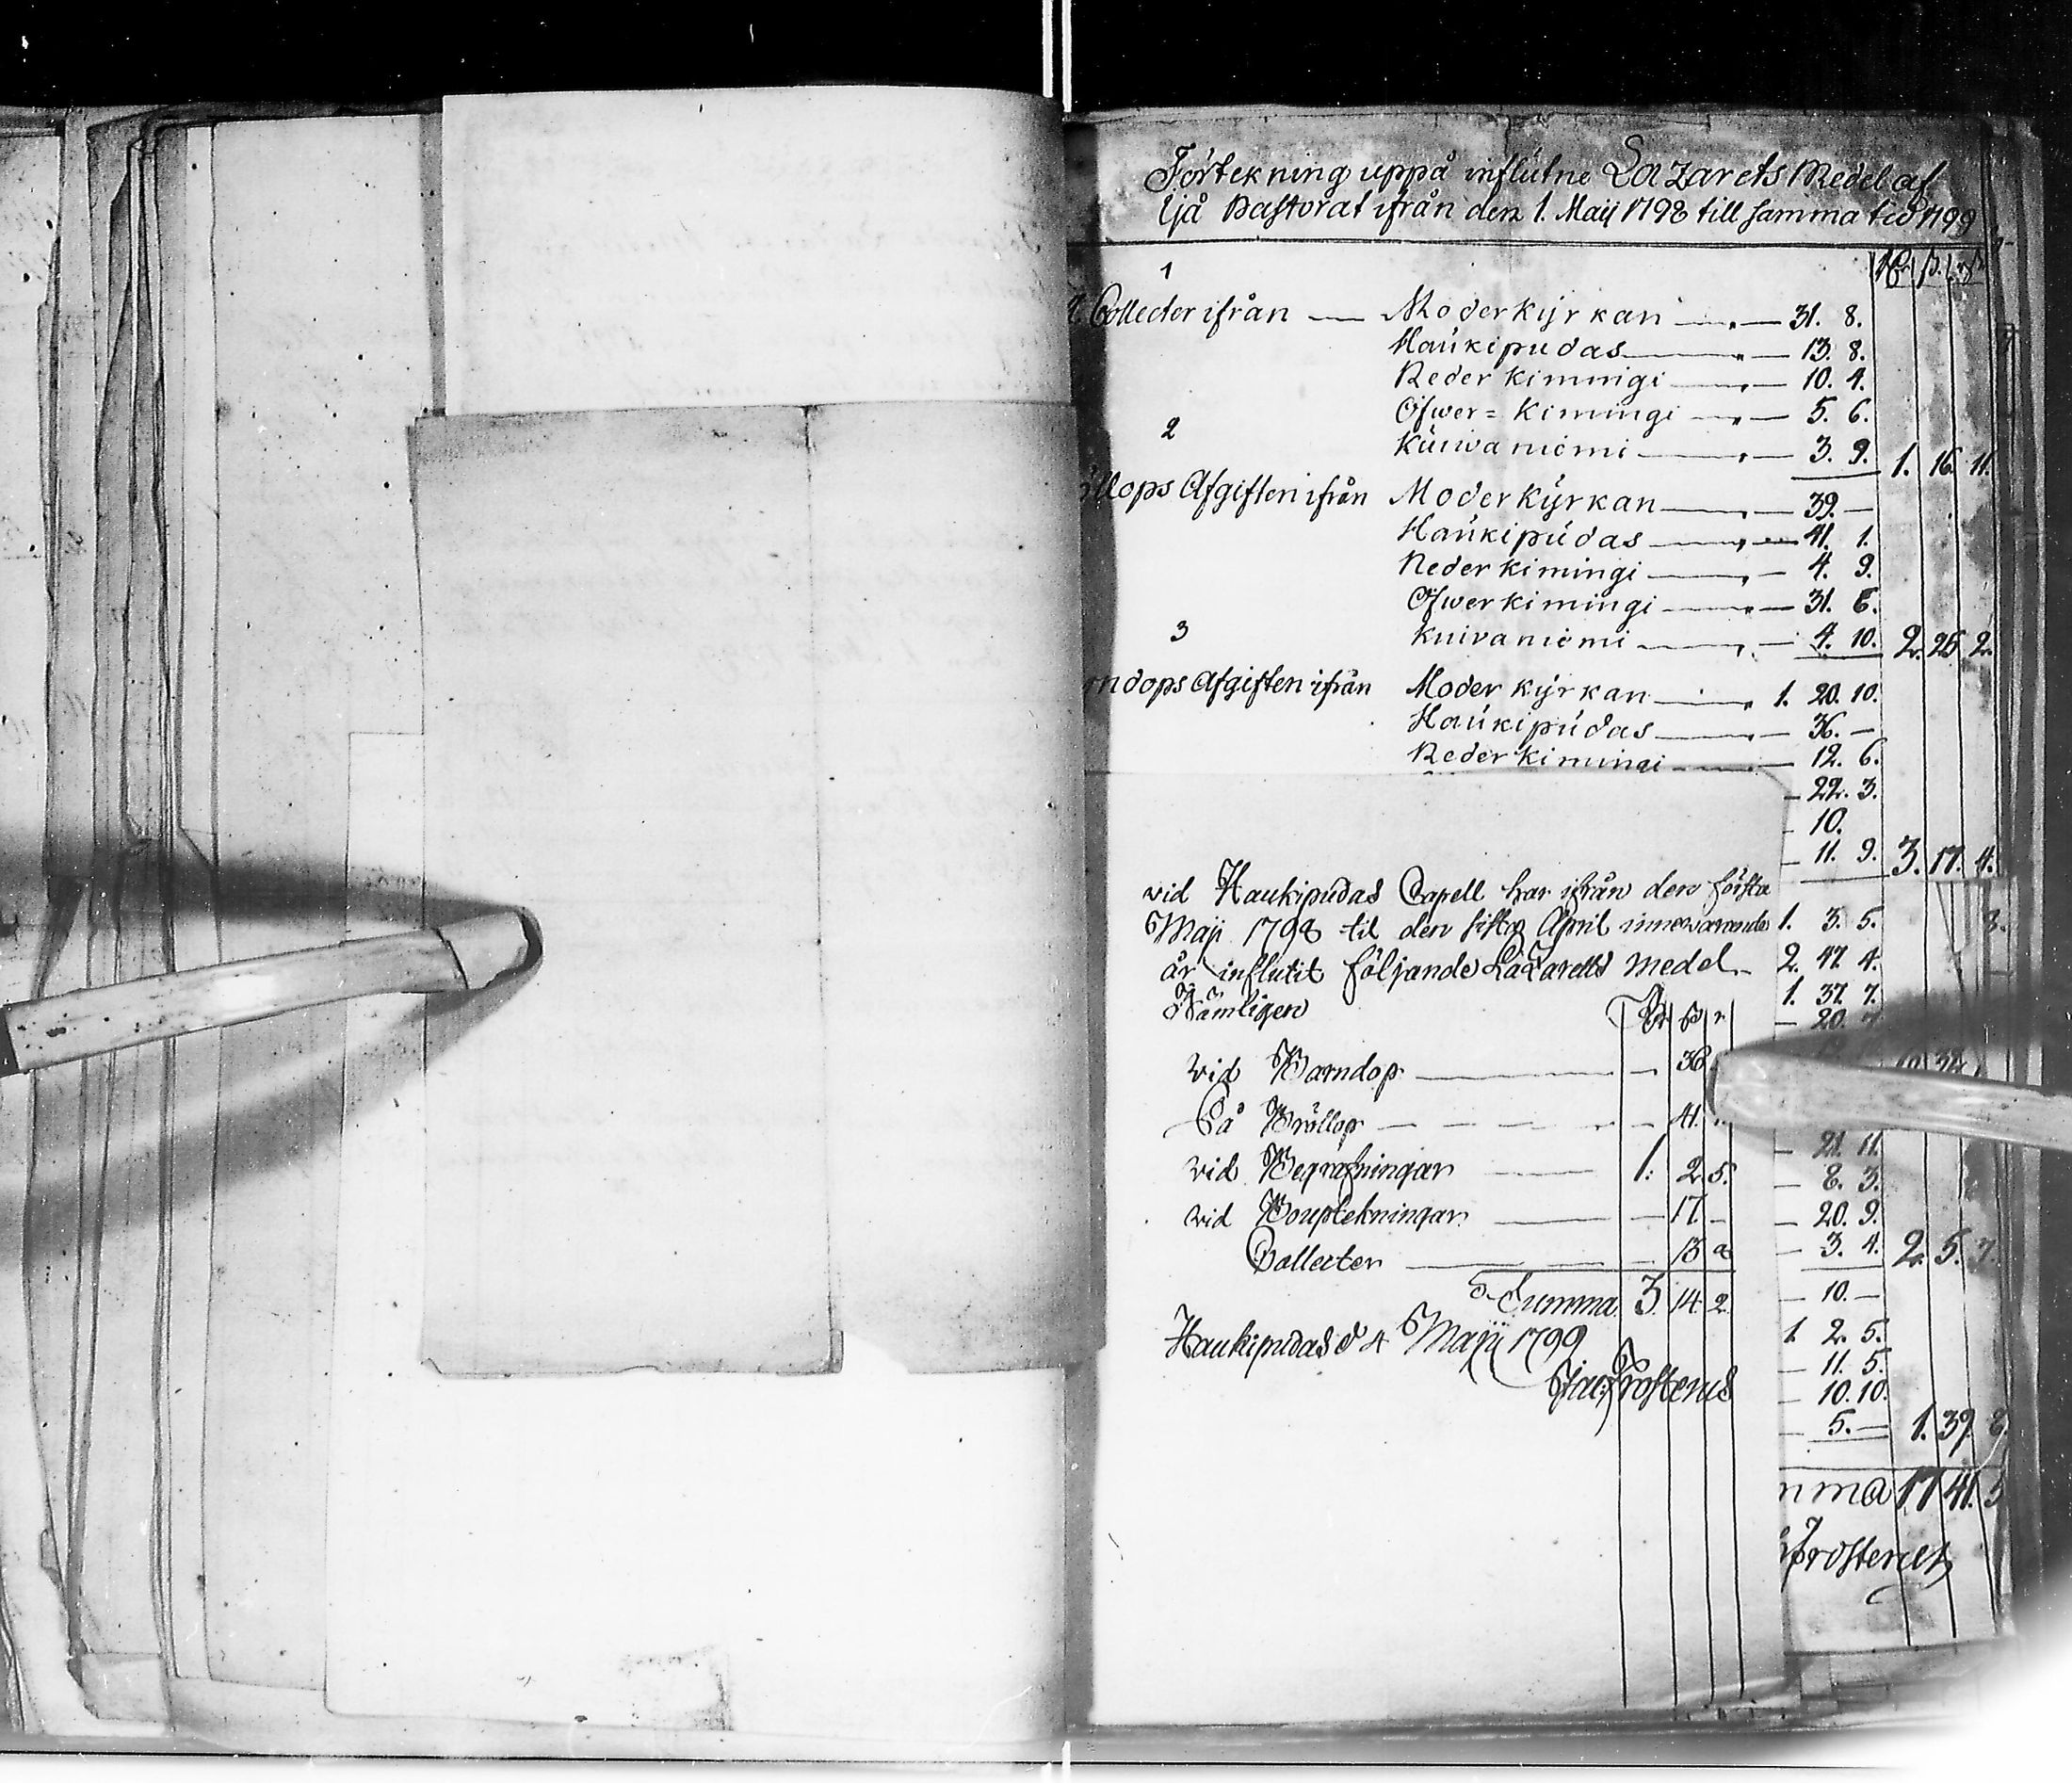 Förtekning uppå influtne Lazarets Medel af
Ijå Pastorat ifrån den 1. Maij 1798 till samma tid 1799
1
Collecter ifrån — Moderkyrkan — 31. 8.
Haukipudas — 13. 8.
Neder kimingi — 10. 4.
Öfwer= Kimingi — 5. 6.
2
Kuiwaniemi — 3. 9. 1. 16. 11.
öllops Afgiften ifrån Moderkyrkan — 39. —
Haukipudas — 41. 1.
Neder kimingi — 4. 9.
Öfwer kimingi — 31. 6.
3
Kuivaniemi — 4. 10. 2. 25 2.
rndops Afgiften ifrån Moder kyrkan — 1. 20. 10.
Haukipudas — 36. —
Neder kimingi — 12. 6.
— 22. 3.
— 10.
— 11. 9. 3. 17. 4.
1. 3. 5.
2. 47. 4.
1. 37. 7.
— 21. 11.
— 8. 3.
— 20. 9.
— 3. 4. 2. 5. 7.
— 10. —
1. 2. 5.
— 11. 5.
— 10. 10.
— 5. — 1. 39. 8.
mma 17 41. 5
Frosterus
vid Haukipudas Capell har ifrån den första
Maji 1798 til den sista April innewarande
år influtit följande Lazaretts medel
Nämligen
vid Barndop — 36
På Bröllop — 41.
vid Begrafningar — 1. 2 5.
vid Bouptekningar — 17 —
Collecter — 13 8
Summa 3 14 2
Haukipudas d 4 Maji 1799
Jac Frosterus